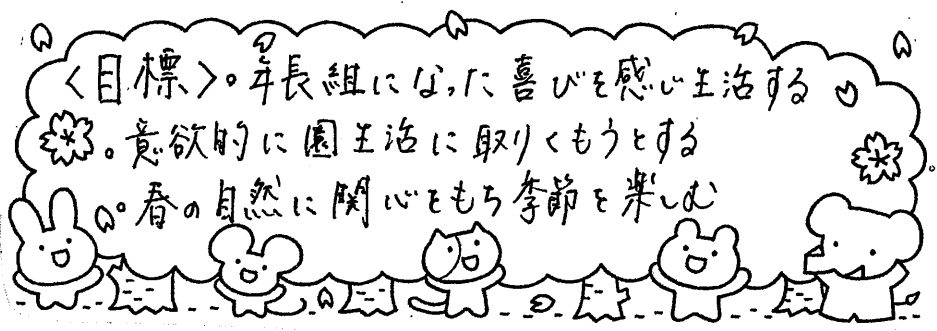 〈目標〉。年長組になった喜びを感じ生活する
。意欲的に園生活に取りくもうとする
。春の自然に関心をもち季節を楽しむ